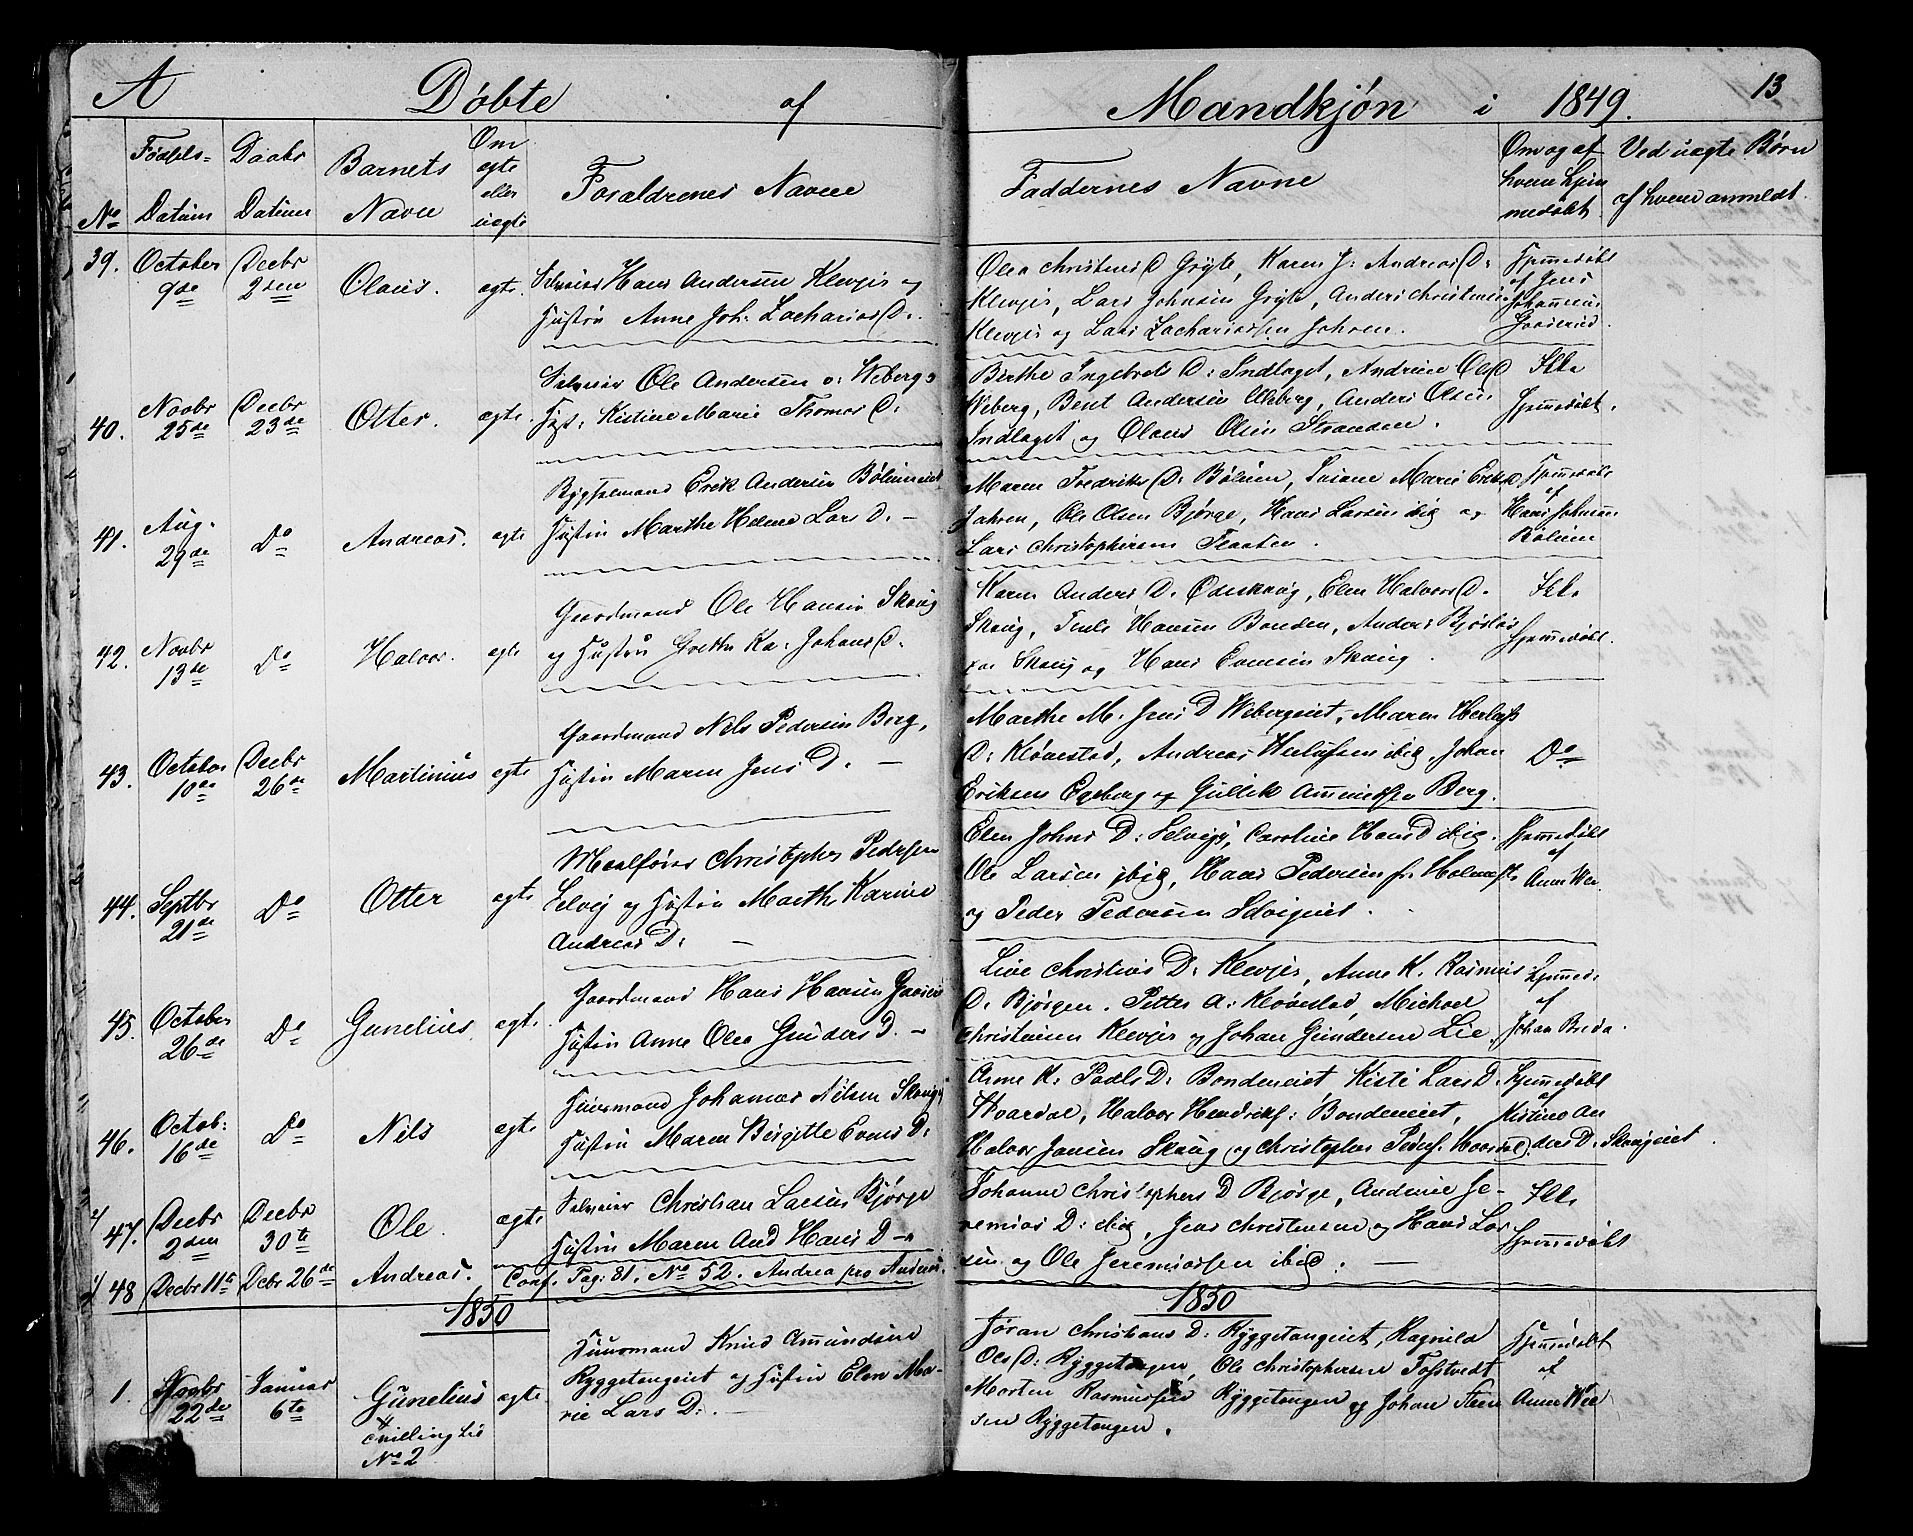 A Døbte af Mandkjøn i 1849. 13
No Fødsels- Datum Daabs Datum Barnets Navn Om egte eller uegte Forældrenes Navne Faddernes Navne Om og af hvem hjemmedøbt Ved uegte Børn af hvem anmeldt.
39. October 9de Decbr 2den Olaus. egte.
Selveier Hans Andersen Klevjer og
Hustru Anne Joh. Zacharias D.
Olea Christens D Gryte, Karen J. Andreas D:
Klevjer, Lars Johnsen Gryte, Anders Christens
Klevjer og Lars Zachariassen Jahren.
Hjemmedøbt
af Jens
Johannes
40. Novbr 25de Decbr 23de Otter. egte.
Selveier Ole Andersen o: Weberg
Hust: Kistine Marie Thomas D.
Berthe Ingebrets D: Indlaget, Andrine Ols D
Weberg, Bent Andersen Weberg, Anders Olsen
Indlaget og Olaus Olsen Stranden.
Ikke
hjemmedøbt.
41. Aug. 29de Do Andreas. egte
Rygselmand Erik Andersen Bølumeiet
Hustru Marthe Helene Lars D. –
Maren Fredriks D: Bølum, Marie Eriks D
Jahren, Ole Olsen Bjørge, Hans Larsen ibid og
Lars Christophersen Plaaten.
Hjemmedøbt
af
Hans Johnsen
Bølum
42. Novbr 13de Do Halvor. egte
Gaardmand Ole Hansen Skoug
og Hustru Grethe Ka: Johans D.
Karen Anders D. Ødeskoug, Elen Halvors D.
Skoug, Hansen Bonden, Anders
Skoug og Hans Evensen Skoug.
Ikke
hjemmedøbt.
43. October 10de Decbr 26de Martinius egte
Gaardmand Nels Pedersen Berg,
Hustru Maren Jens D. –
Marthe M. Jens D Webergeiet, Maren Herlofs
D: Kløvestad, Andreas Herlofsen ibid, Johan
Eriksen Egeberg og Gullik Ammundsen Berg.
Do
44. Septbr 21de Do Otter egte
Maalfører Christopher Pedersen
Selvig og Hustru Marthe Karine
Andreas D: –
Elen Johns D: Selvig, Caroline Hans D ibid.
Ole Larsen ibid, Hans Pedersen fr. Holmest.
og Peder Pedersen Selvigeiet.
Hjemmedøbt
af
Anne Wee.
45. October 26de Do Gunelius egte.
Gaardmand Hans Hansen
Hustru Anne Olea Gunders D. –
Live Christians D: Klevjer, Anne K. Rasmus
D. Bjørgen. Petter A: Kløvestad, Michael
Christensen Klevjer og Johan Gundersen Lie.
Hjemmed:
af
Johan Breda.
46. Octob: 16de Do Nils egte
Huusmand Johannes Nilsen Skougs
Hustru Maren Birgitte Evens D:
Anne K: Povls D: Bondeneiet Kisti Lars D.
Hvaardal, Halvor Hendriks: Bondeneiet,
Halvor Jansen Skoug og Christopher Peders. Hvaardal.
Hjemmedøbt
af
Kistine An
ders D: Skougeiet.
47. Decbr 2den Decbr 30te Ole. egte
Selveier Christian Larsen Bjørge
Hustru Maren And Hans D –
Johanne Christophers D Bjørge, Andrine Je-
remias D: ibid, Jens Christensen og Hans Lar
sen og Ole Jeremiassen ibid. –
Ikke
hjemmedøbt
48 Decbr 11te Decbr 26de Andreas. Conf. Pag: 81. No 52. Andrea pro Andreas.
1850 1850
1. Novbr 22de Januar 6te Gunelius egte.
Tvilling Lie
No 2
Huusmand Knud Amundsen
Ryggetangeiet og Hustru Elen Ma-
rie Lars D: –
Jøran Christians D: Ryggetangeiet, Ragnild
Ols D: Ryggetangen, Ole Christophersen Tofstvedt
Morten Rasmussen Ryggetangen og Johan Steen
sen Ryggetangen.
Hjemmedøbt
af
Anne Wee